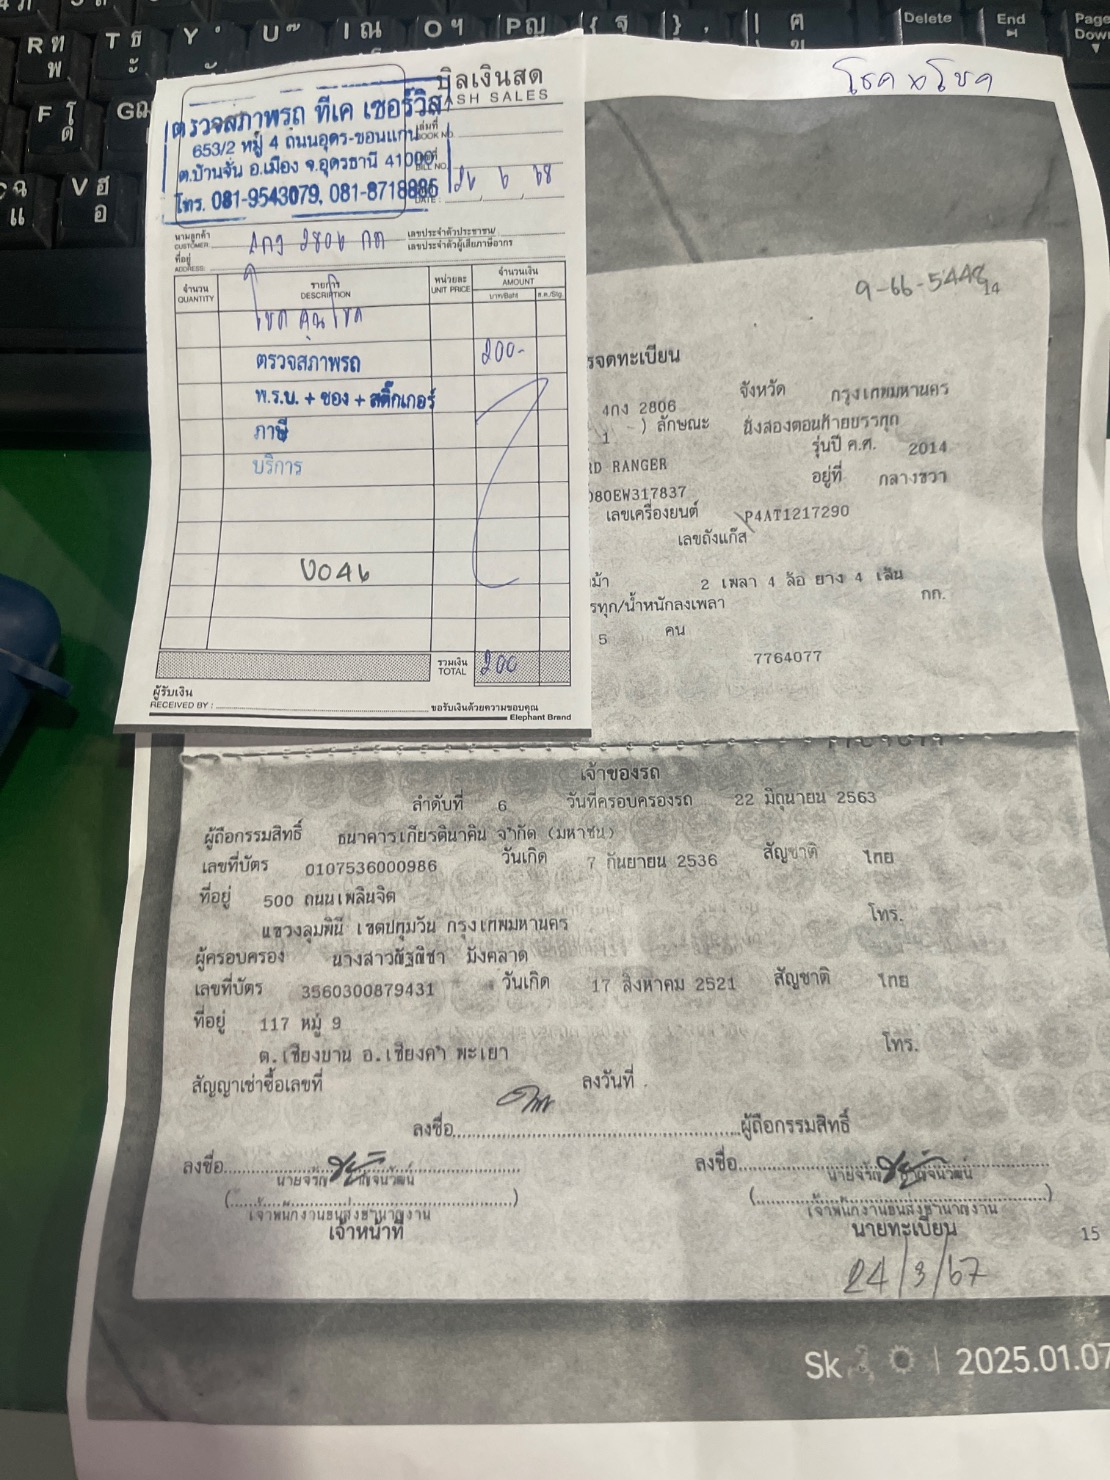 โชค x โชค
บิลเงินสด
CASH SALES
ตรวจสภาพรถ ทีเค เซอร์วิส
653/2 หมู่ 4 ถนนอุดร-ขอนแก่น
ต.บ้านจั่น อ.เมือง จ.อุดรธานี 41000
โทร. 081-9543079, 081-8718886
เล่มที่
BOOK NO.
BILL NO.
DATE :
26 6 68
นามลูกค้า
CUSTOMER
4กง 2806 กท
เลขประจำตัวประชาชน/
เลขประจำตัวผู้เสียภาษีอากร
ที่อยู่
ADDRESS:
จำนวน
QUANTITY
รายการ
DESCRIPTION
หน่วยละ
UNIT PRICE
จำนวนเงิน
AMOUNT
บาท/Baht
ส.ต./Stg.
โชค คูณ โชค
ตรวจสภาพรถ 200-
พ.ร.บ. + ซอง + สติ๊กเกอร์
ภาษี
บริการ
รวมเงิน
TOTAL
200
ผู้รับเงิน
RECEIVED BY :
ขอรับเงินด้วยความขอบคุณ
Elephant Brand
9-66-5448
14
รจดทะเบียน
4กง 2806 จังหวัด กรุงเทพมหานคร
1 ) ลักษณะ นั่งสองตอนท้ายบรรทุก
รุ่นปี ค.ศ. 2014
RD RANGER อยู่ที่ กลางขวา
080EW317837
เลขเครื่องยนต์ P4AT1217290
เลขถังแก๊ส
2 เพลา 4 ล้อ ยาง 4 เส้น
รทุก/น้ำหนักลงเพลา กก.
5 คน
7764077
เจ้าของรถ
ลำดับที่ 6 วันที่ครอบครองรถ 22 มิถุนายน 2563
ผู้ถือกรรมสิทธิ์ ธนาคารเกียรตินาคิน จำกัด (มหาชน)
เลขที่บัตร 0107536000986 วันเกิด 7 กันยายน 2536 สัญชาติ ไทย
ที่อยู่ 500 ถนนเพลินจิต
แขวงลุมพินี เขตปทุมวัน กรุงเทพมหานคร โทร.
ผู้ครอบครอง นางสาวณัฐณิชา มังคลาด
เลขที่บัตร 3560300879431 วันเกิด 17 สิงหาคม 2521 สัญชาติ ไทย
ที่อยู่ 117 หมู่ 9
ต.เชียงบาน อ.เชียงคำ พะเยา โทร.
สัญญาเช่าซื้อเลขที่ ลงวันที่
ลงชื่อ ผู้ถือกรรมสิทธิ์
ลงชื่อ ลงชื่อ
เจ้าพนักงานขนส่งชำนาญงาน เจ้าพนักงานขนส่งชำนาญงาน
เจ้าหน้าที่ นายทะเบียน
15
24/3/67
2025.01.07